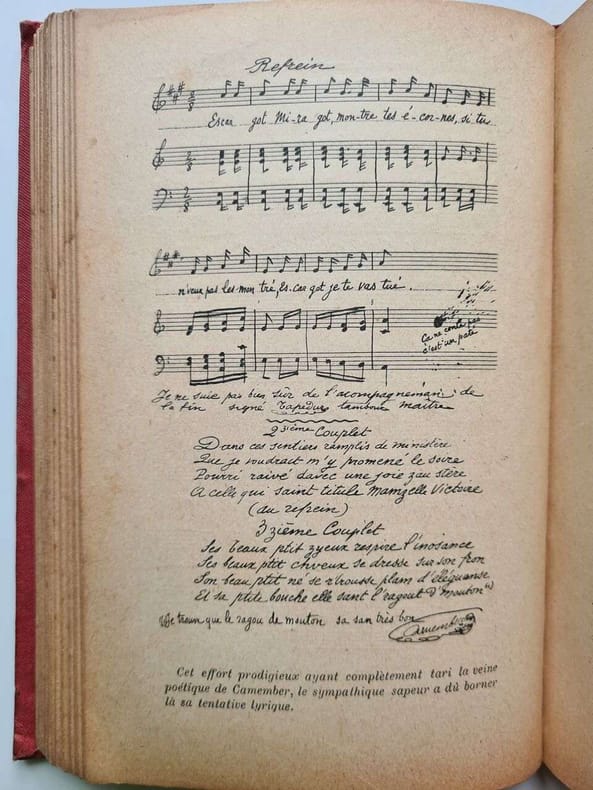 Refrein
Escar got Mi-ra got, mon-tre tes é-cor-nes, si tu
n'veux pas les mon tré, Es-car got je te vas tué.
Ça ne conte pas
c'est un pate
Je ne suie pas bien sûr de l'acompagnéman de
la fin signé Tapedur tambour maître
2 zième Couplet
Dans ces sentiers ramplis de ministère
Que je voudrait m'y promené le soire
Pourri raivé davec une joie zau stère
A celle qui saint titule Mamzelle Victoire
(au refrein)
3 zième Couplet
Ses beaux ptit zyeux respire l'inosance
Ses beaux ptit chveux se dresse sur son fron
Son beau ptit né se r'trousse plain d'éléguanse
Et sa ptite bouche elle sant l'ragout d'mouton"
Je troun que le ragou de mouton sa san très bon
Camember
Cet effort prodigieux ayant complètement tari la veine
poétique de Camember, le sympathique sapeur a dû borner
là sa tentative lyrique.